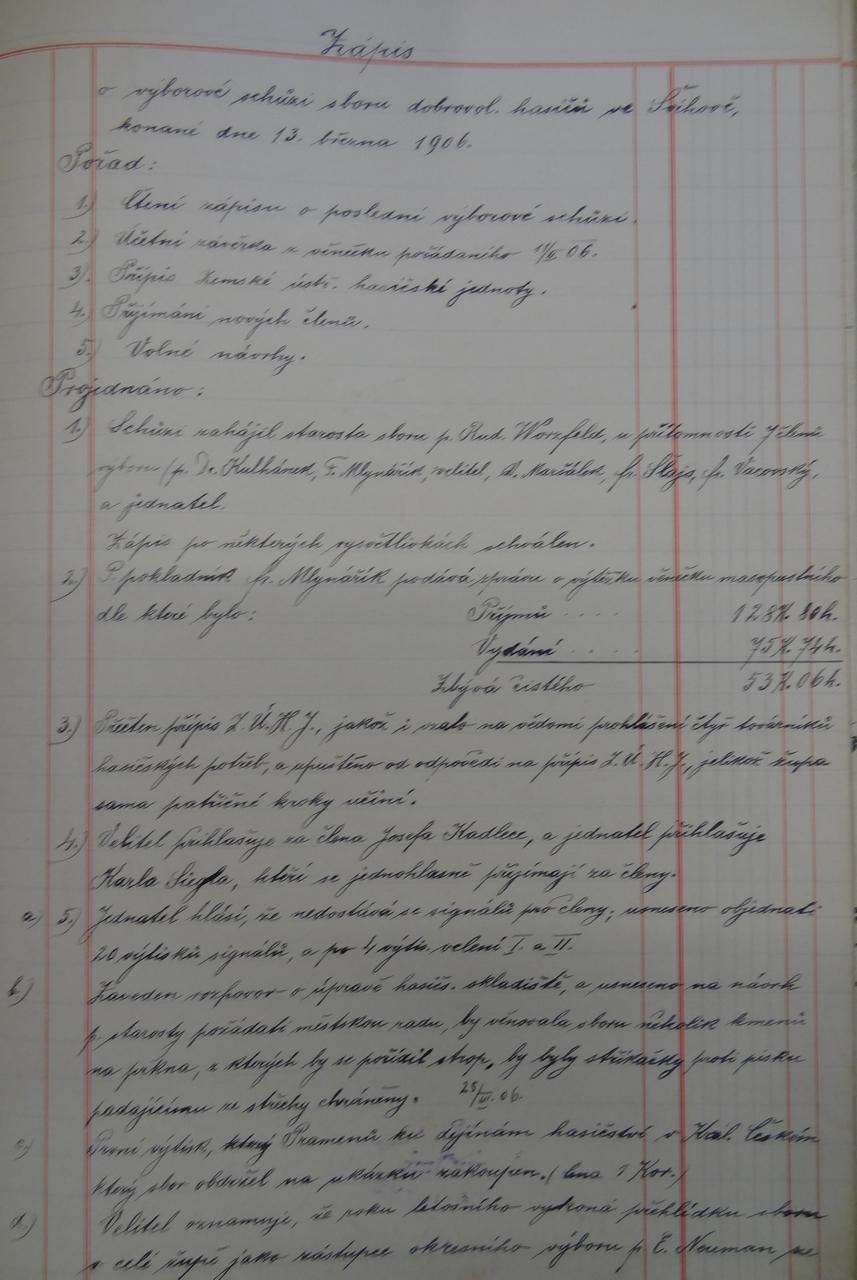 Zápis
o výborové schůzi sboru dobrovol. hasičů ve Švihově,
konané dne 13. března 1906.
Pořad:
1.) Čtení zápisu o poslední výborové schůzi.
2.) Účetní závěrka z věnečku pořádaného 1/II 06.
3.) Přípis Zemské ústř. hasičské jednoty.
4.) Přijímání nových členů.
5.) Volné návrhy.
Projednáno:
1.) Schůzi zahájil starosta sboru p. Rud. Worzfeld, u přítomnosti 7 členů
výboru (p. Dr. Kulhánek, F. Mlynářík, velitel, A. Maršálek, fr. Šlajs, fr. Vacovský,
a jednatel.
Zápis po některých vysvětlivkách schválen.
2.) P. pokladník fr. Mlynářík podává zprávu o výtěžku věnečku masopustního
dle které bylo: Příjmů . . . . 128 K. 80 h.
Vydání . . . . 75 K. 74 h.
Zbývá čistého 53 K. 06 h.
3.) Přečten přípis Z. Ú. H. J., jakož i vzato na vědomí prohlášení čtyř továrníků
hasičských potřeb, a upuštěno od odpovědi na přípis Z. Ú. H. J., jelikož župa
sama patřičné kroky učiní.
4.) Velitel přihlašuje za člena Josefa Kadlece, a jednatel přihlašuje
Karla Siegla, kteří se jednohlasně přijímají za členy.
a) 5.) Jednatel hlásí, že nedostává se signálů pro členy; usneseno objednati
20 výtisků signálů, a po 4 výtis. velení I. a II.
b) Zaveden rozhovor o úpravě hasič. skladiště, a usneseno na návrh
p. starosty požádati městskou radu, by věnovala sboru několik kmenů
na prkna, z kterých by se pořídil strop, by byly stříkačky proti písku
padajícímu ze střechy chráněny. 25/III. 06.
c) První výtisk, který Pramenů ku dějinám hasičství v Král. Českém
který sbor obdržel na ukázku zakoupen. (Cena 1 Kor.)
d) Velitel oznamuje, že roku letošního vykoná přehlídku sboru
v celé župě jako zástupce okresního výboru p. E. Neuman ze